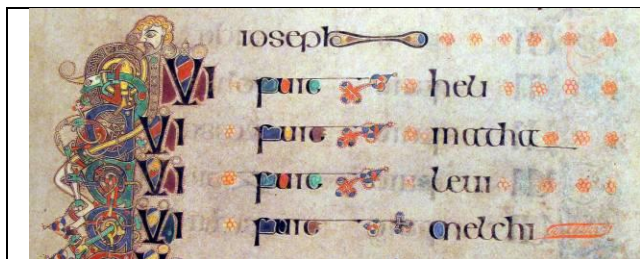 ioseph
QUI fuit heli
QUI fuit matha
QUI fuit leui
QUI fuit melchi